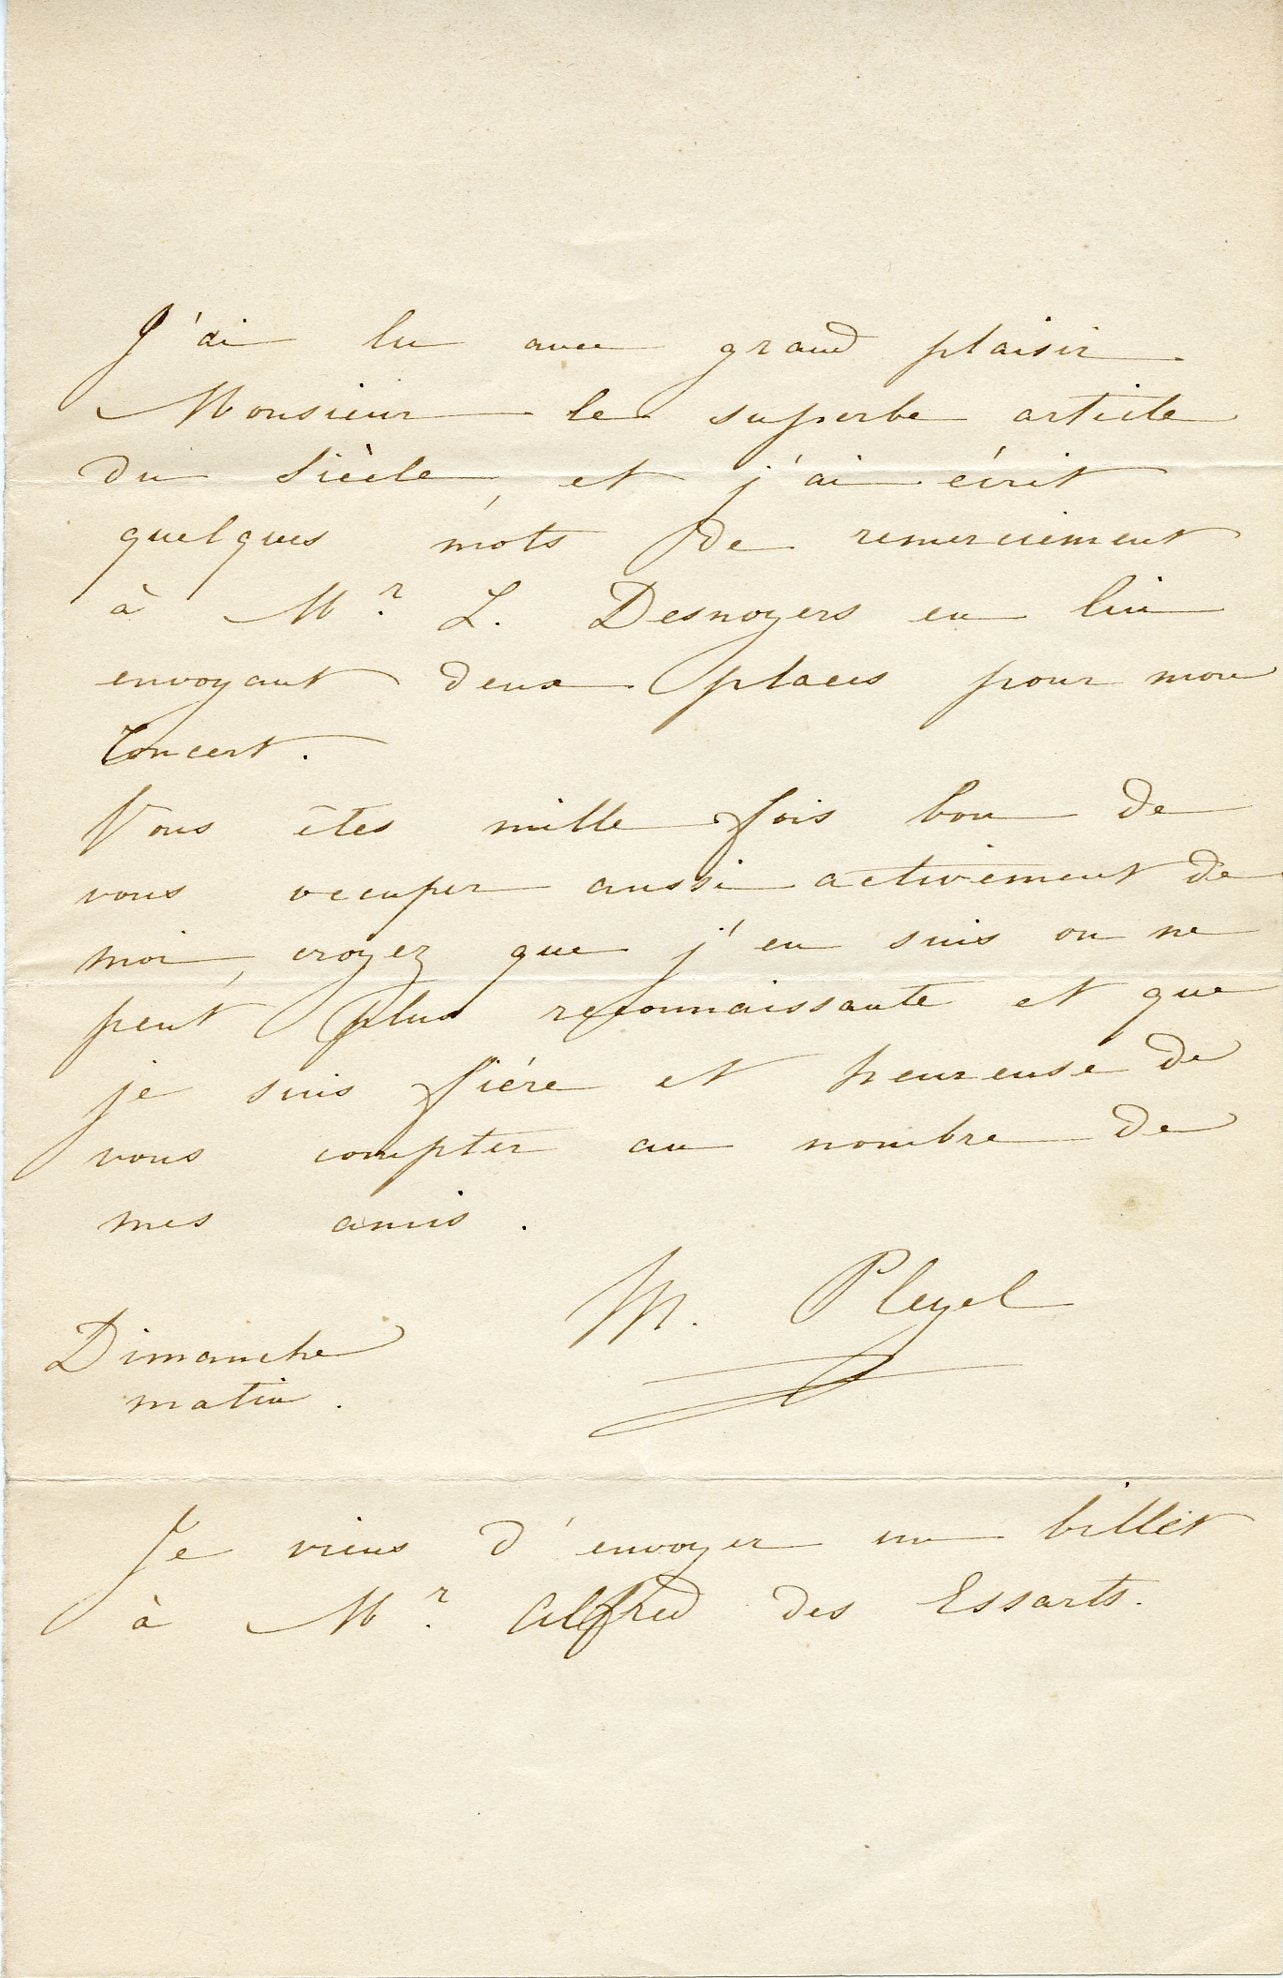 J'ai lu avec grand plaisir
Monsieur le superbe article
du Siècle, et j'ai écrit
quelques mots de remerciement
à Mr. L. Desnoyers en lui
envoyant deux places pour mon
Concert.
Vous êtes mille fois bon de
vous occuper aussi activement de
moi, croyez que j'en suis on ne
peut plus reconnaissante et que
je suis fière et heureuse de
vous compter au nombre de
mes amis.
M. Pleyel
Dimanche
matin.
Je viens d'envoyer un billet
à Mr. Alfred des Essarts.